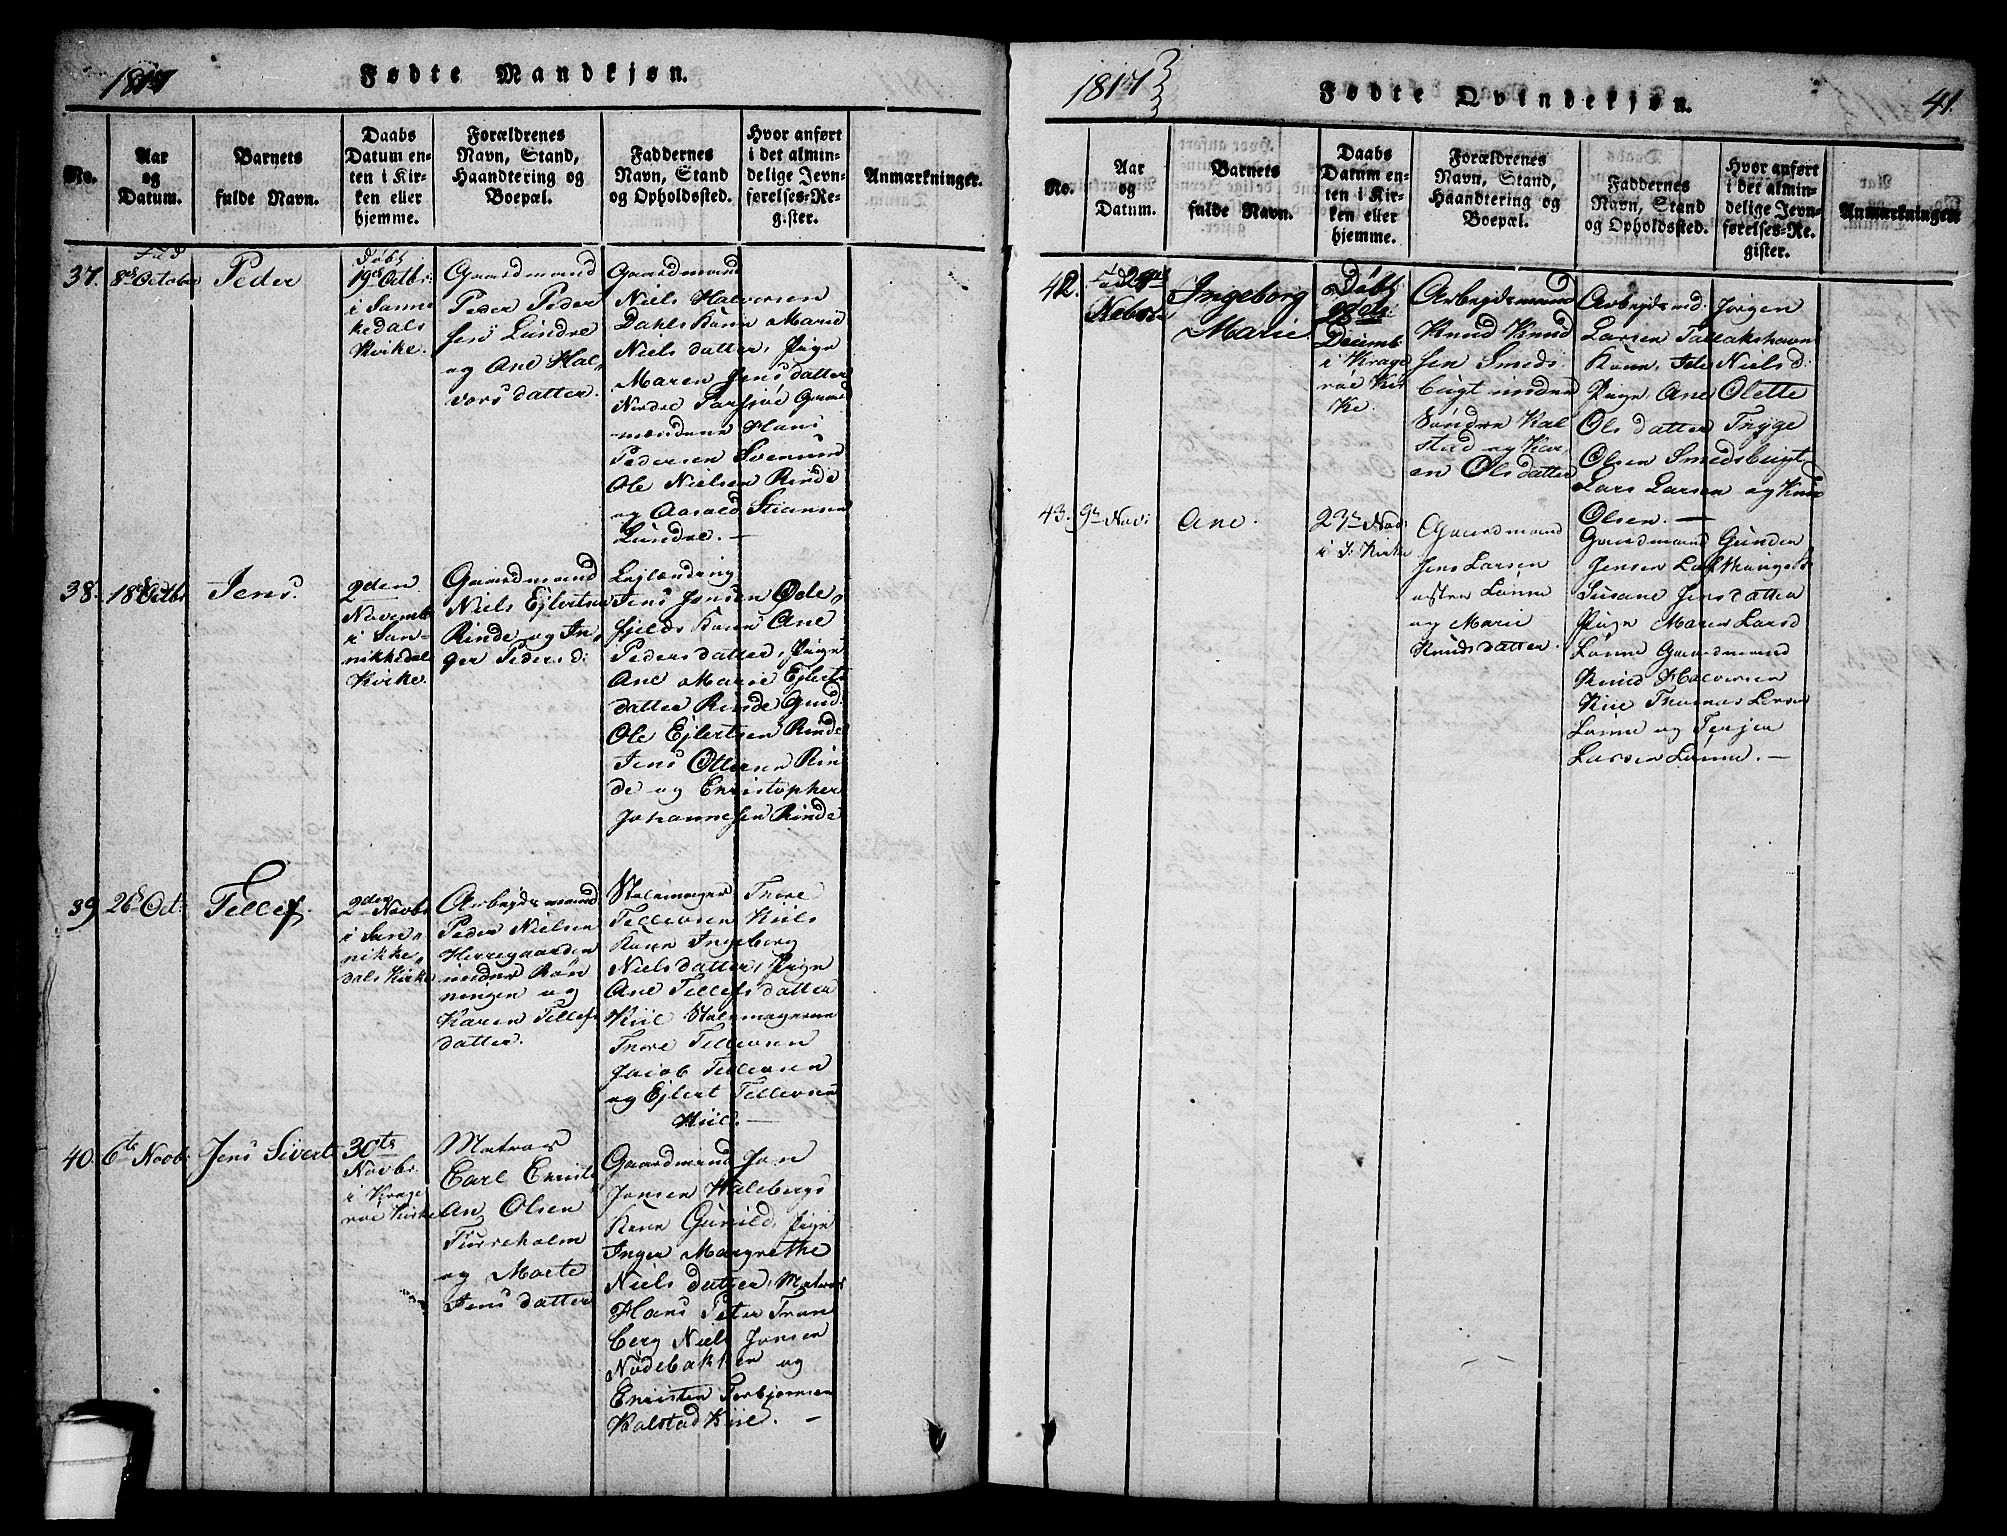 1817
Fødte Mandkjøn.
No.
Aar
og
Datum.
Barnets
fulde Navn.
Daabs
Datum en-
ten i Kir-
ken eller
hjemme.
Forældrenes
Navn, Stand,
Haandtering og
Boepæl.
Faddernes
Navn, Stand
og Opholdssted.
Hvor anført
i det almin-
delige Jevn-
førelses-Re-
gister.
Anmærkninger.
37.
Fød
8de October
Peder
Døbt
19de Octbr:
i Sanne
kedals
Kirke.
Gaardmand
Peder Peder
sen Lundre
og Ane Hal„
vors datter.
Gaardmand
Niels Halversen
Dahls Kone Marie
Niels datter, Pige
Maren Jens datter
Nordre
mændene Hans
Pedersen Svenum
Ole Nielsen Rinde
og Aasold Stiansen
Lundre. —
38.
18de Octbr
Jens.
2den
Novemb
i San-
nikkedals
Kirke.
Gaardmand
Niels Ejlertsen
Rinde og In„
ger Peders d:
Lejlænding
Jens Jensen Øde„
fjelds Kone Ane
Peders datter, Pige
Ane Marie Ejlerts
datter Rinde Gmd.
Ole Ejlertsen Rinde
Jens Ottersen Rin
de og Christopher
Johannesen Rinde
39
26de Oct:
Tellef.
2den Novbr
i San„
nikke„
dals Kirke
Arbejdsmand
Peder Nielsen
Herregaarden
under Røn
ningen og
Karen Tellefs
datter.
Stolemager Thore
Tellevsen Kiils
Kone Ingeborg
Niels datter, Pige
Ane Tellefs datter
Kiil Stolemagerne
Thore Tellevsen
Jacob Tellevsen
og Ejlert Tellevsen
Kiil. —
40.
6te Novbr
Jens Sivert
30te
Novbr.
i Krage
røe Kirke
Matros
Carl Christi
an Olsen
Furreholm
og Marte
Jens datter
Gaardmand Jon
Jonsen Halebergs
Kone Gunild, Pige
Inger Margrethe
Niels datter, Matros
Hans Peter Tran
berg Niels Jonsen
Nødebakken og
Christen Torbjørnsen
Kalstad Kiil. —
1817
Fødte Qvindekjøn.
41.
No.
Aar
og
Datum.
Barnets
fulde Navn.
Daabs
Datum en-
ten i Kir-
ken eller
hjemme.
Forældrenes
Navn, Stand,
Haandtering og
Boepæl.
Faddernes
Navn, Stand
og Opholdssted.
Hvor anført
i det almin-
delige Jevn-
førelses-Re-
gister.
Anmærkninger
42.
Ingeborg
Marie.
Døbt
Decemb
i Krage
røe Kir
ke.
Arbejdsmand
Knud Knud
sen Smeds
bugt under
Søndre Kal
stad og Kar
en Olsdatter
Arbejdsmd. Jørgen
Larsen Tallakshavn
Kone, Niels d.
Pige Ane Olette
Ols datter Tryge
Olsen Smedsbugt
Lars Larsen og Knud
Olsen. —
43.
9de Nov:
Ane.
23de Nov:
i S: Kirke
Gaardmand
Jens Larsen
østre Lønne
og Marie
Knuds datter.
Gaardmand Gunder
Jensen
Susane Jens datter
Pige Maren Larsd
Lønne Gaardmand
Knud Halversen
Kiil Thomas Larsen
Lønne og Terjer
Larsen Lønne. —